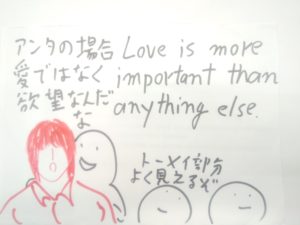 アンタの場合
愛ではなく
欲望なんだ
な
Love is more
important than
anything else.
トーメイ部分
よく見えるぞ